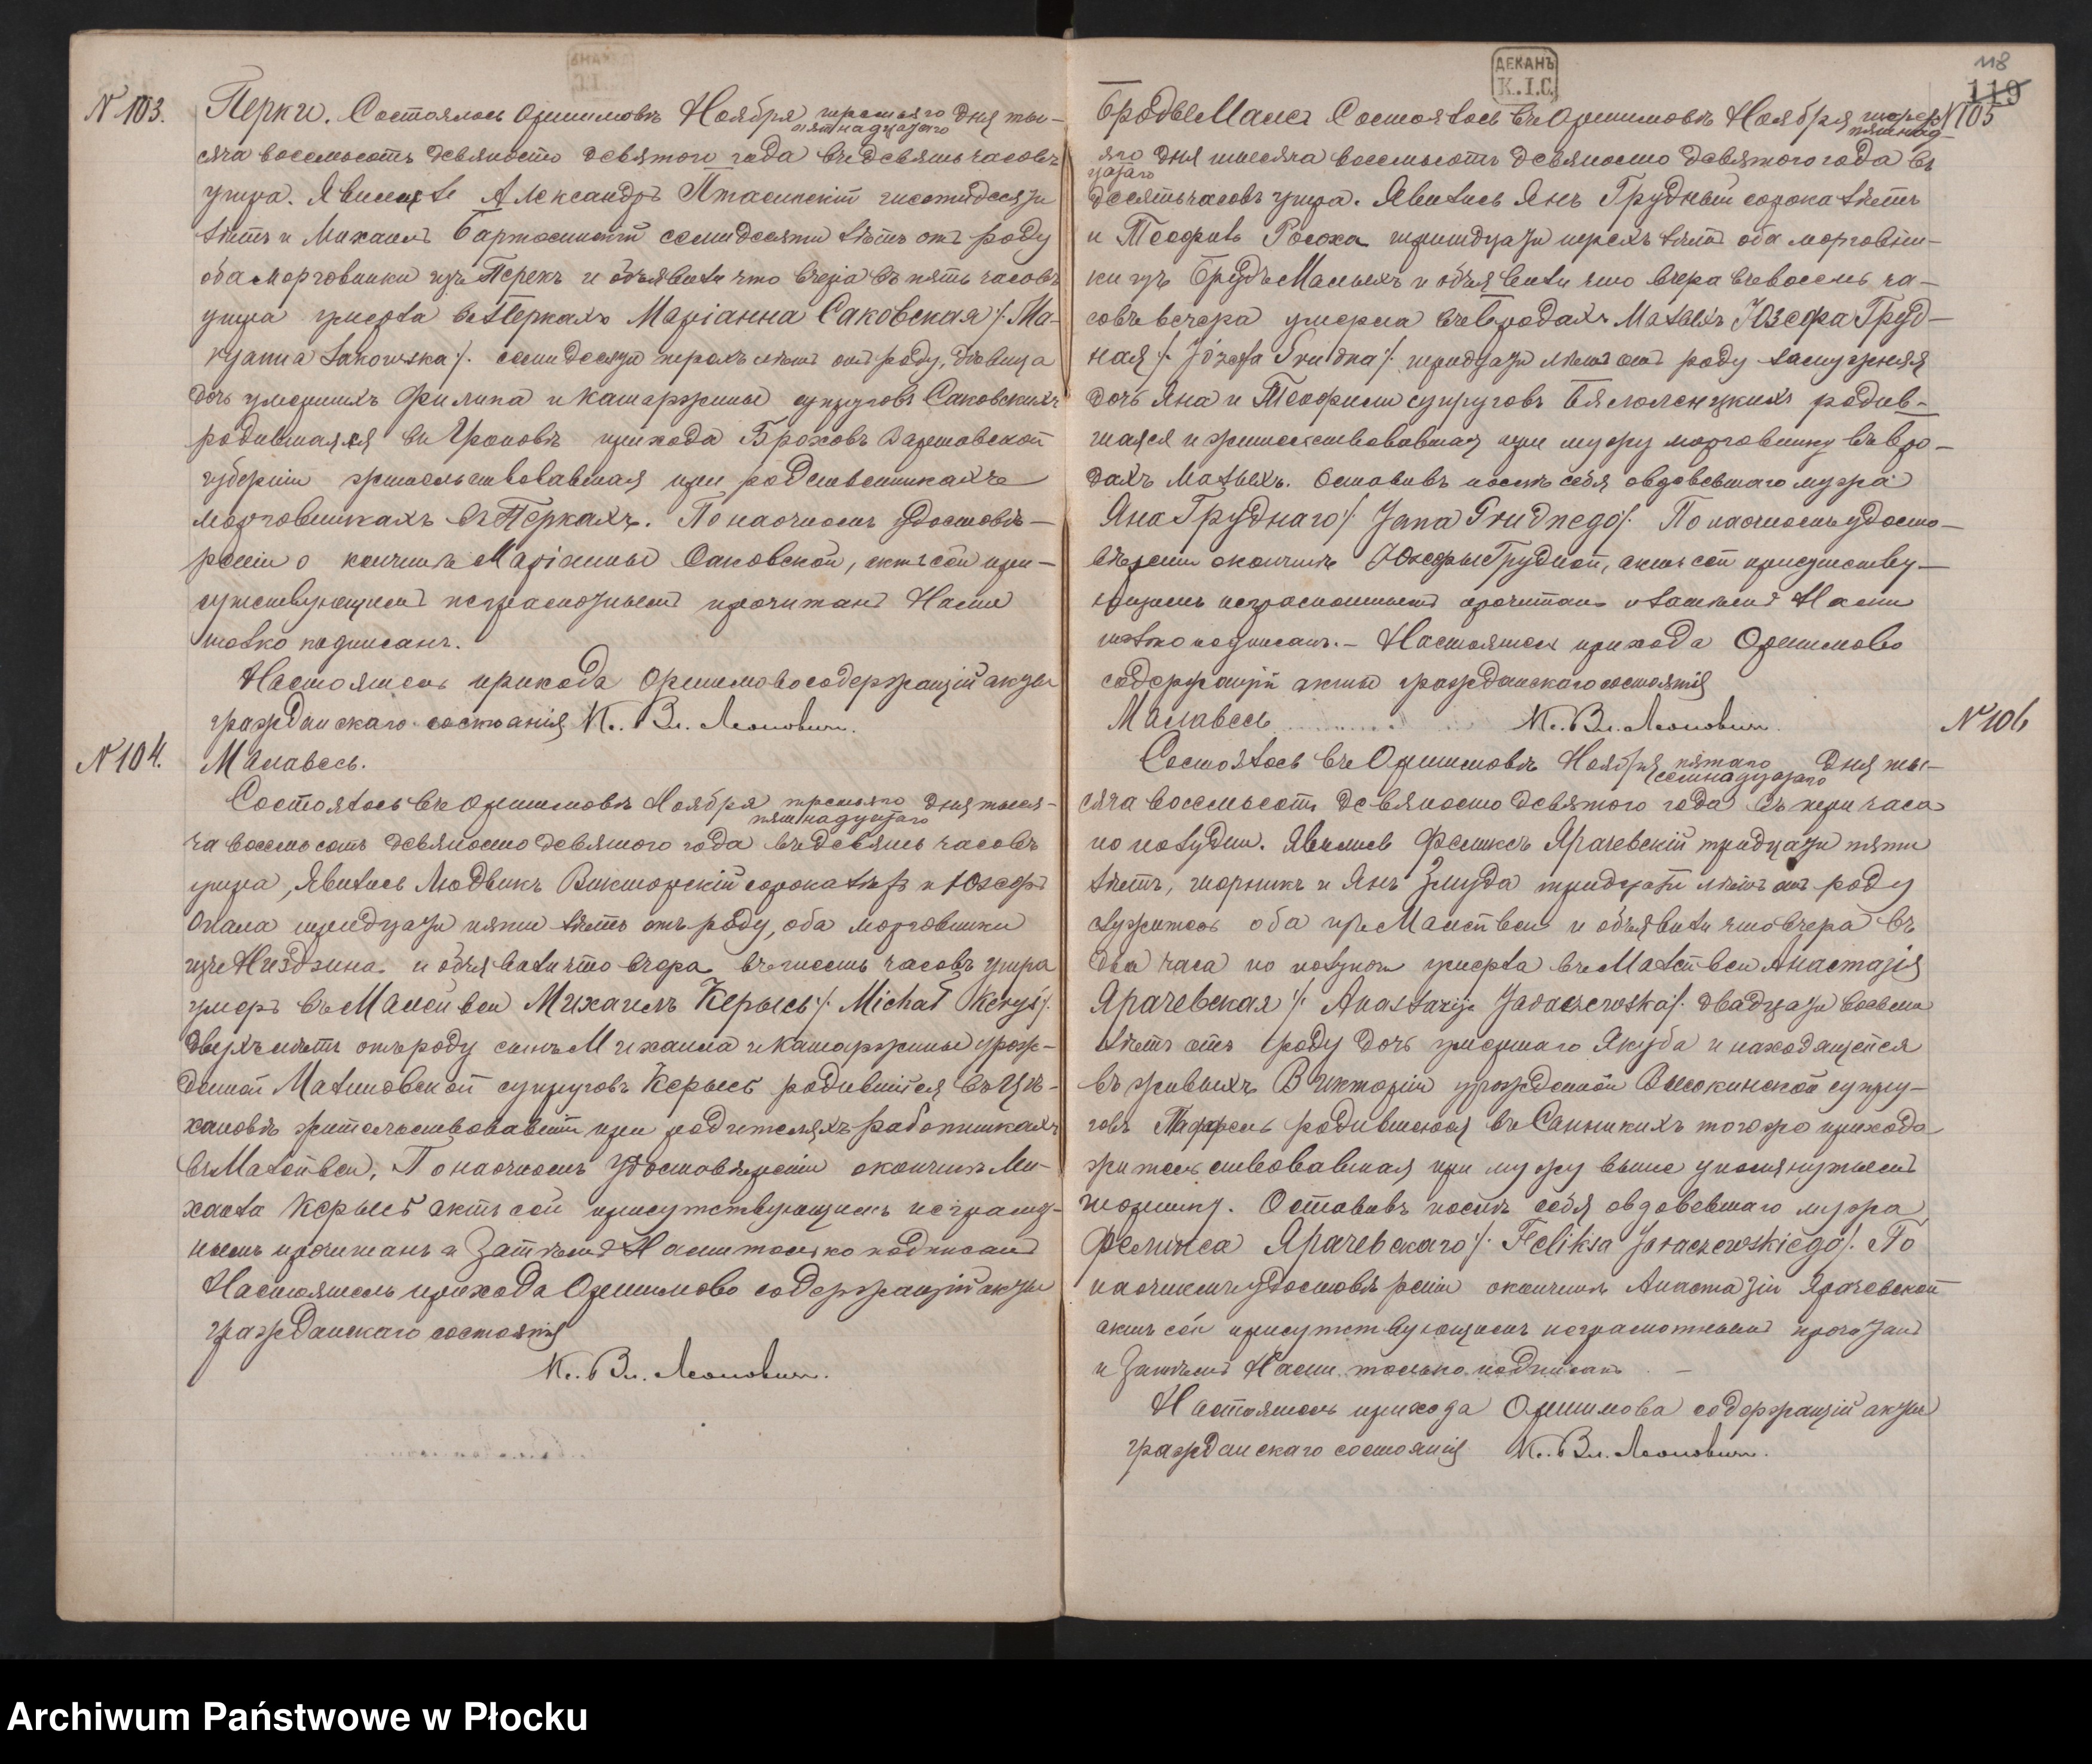 N 103.
Перки. Состоялось Оршимовъ Ноября третьяго дня ты-
пятнадцатаго
сяча восемьсотъ девяносто девятого года въ девять часовъ
утра. Явились Александръ Птасинскій шестидесяти
лѣтъ и Михаилъ Бартосинскій семидесяти лѣтъ отъ роду
оба морговники изъ Перекъ и объявили что вчера въ пять часовъ
утра умерла въ Перкахъ Маріанна Саковская /: Ma-
ryanna Sakowska /: семидесяти трехъ лѣтъ отъ роду, дѣвица
дочь умершихъ Филипа и Катаржины супруговъ Саковскихъ
родившаяся въ прихода Броховъ Варшавской
губерніи жительствовавшая при родственникахъ
морговникахъ въ Перкахъ. По наочномъ удостовѣ-
реніи о кончинѣ Маріанны Саковской, актъ сей при-
сутствующимъ неграмотнымъ прочитанъ Нами
только подписанъ.
Настоятель прихода Оршимово содержащій акты
гражданскаго состоянія К. Вл. Леонович.
N 104.
Малавесь.
Состоялось въ Оршимовъ Ноября третьяго дня тыся-
пятнадцатаго
ча восемьсотъ девяносто девятого года въ девять часовъ
утра, Явились Людвикъ Викторскій сорока лѣтъ и Юзефъ
тридцати пяти лѣтъ отъ роду, оба морговники
изъ Нездзина и объявили что вчера въ шесть часовъ утра
умеръ въ Малей вси Михаилъ Керысь /: Michał Keryś /:
двухъ лѣтъ отъ роду сынъ Михаила и Катаржины урож-
денной Малиновской супруговъ Керысь родившійся въ Цѣ-
хановѣ жительствовавшій при родителяхъ работникахъ
въ Малой вси. По наочномъ удостовѣреніи о кончинѣ Ми-
хаила Керысь актъ сей присутствующимъ неграмот-
нымъ прочитанъ а затѣмъ Нами только подписанъ
Настоятель прихода Оршимово содержащій акты
гражданскаго состоянія
К. Вл. Леонович.
ДЕКАНЪ
K.I.C.
118
119
N 105
Броды Малы Состоялось въ Оршимовъ Ноября треть
пятнад
яго дня тысяча восемьсотъ девяносто девятого года въ
цатаго
десять часовъ утра. Явились Янъ Грудный сорока лѣтъ
и Теофилъ Росоха тридцати трехъ лѣтъ оба морговни-
ки изъ Бродъ Малыхъ и объявили что вчера въ восемь ча-
совъ вечера умерла въ Бродахъ Малыхъ Юзефа Груд-
ная /: Józefa Grudna /: тридцати лѣтъ отъ роду замужняя
дочь Яна и Теофили супруговъ родив-
шаяся и жительствовавшая при мужу морговнику въ Бро-
дахъ Малыхъ. Оставивъ послѣ себя овдовевшаго мужа
Яна Груднаго /: Jana Grudnego /: По наочномъ удосто-
вѣреніи о кончинѣ Юзефы Грудной, актъ сей присутству-
ющимъ неграмотнымъ прочитанъ и затѣмъ Нами
только подписанъ. – Настоятель прихода Оршимово
содержащій акты гражданскаго состоянія
Малавесь К. Вл. Леонович.
N 106
Состоялось въ Оршимовъ Ноября пятаго дня ты-
семнадцатаго
сяча восемьсотъ девяносто девятого года въ три часа
по полудни. Явились Феликсъ Ярачевскій тридцати пяти
лѣтъ, шорникъ и Янъ Змуда тридцати лѣтъ отъ роду
служитель оба изъ Малей вси и объявили что вчера въ
два часа по полудни умерла въ Малой вси Анастазія
Ярачевская /: Anastazija Jaraczewska /: двадцати восьми
лѣтъ отъ роду дочь умершаго Якуба и находящейся
въ живыхъ Викторіи урожденной супру-
говъ родившаяся въ Санникахъ того же прихода
жительствовавшая при мужу выше упомянутымъ
шорнику. Оставивъ послѣ себя овдовевшаго мужа
Феликса Ярачевскаго /: Feliksa Jaraczewskiego /: По
наочномъ удостовѣреніи о кончинѣ Анастазіи Ярачевской
актъ сей присутствующимъ неграмотнымъ прочитанъ
и затѣмъ Нами только подписанъ –
Настоятель прихода Оршимова содержащій акты
гражданскаго состоянія К. Вл. Леонович.
Archiwum Państwowe w Płocku